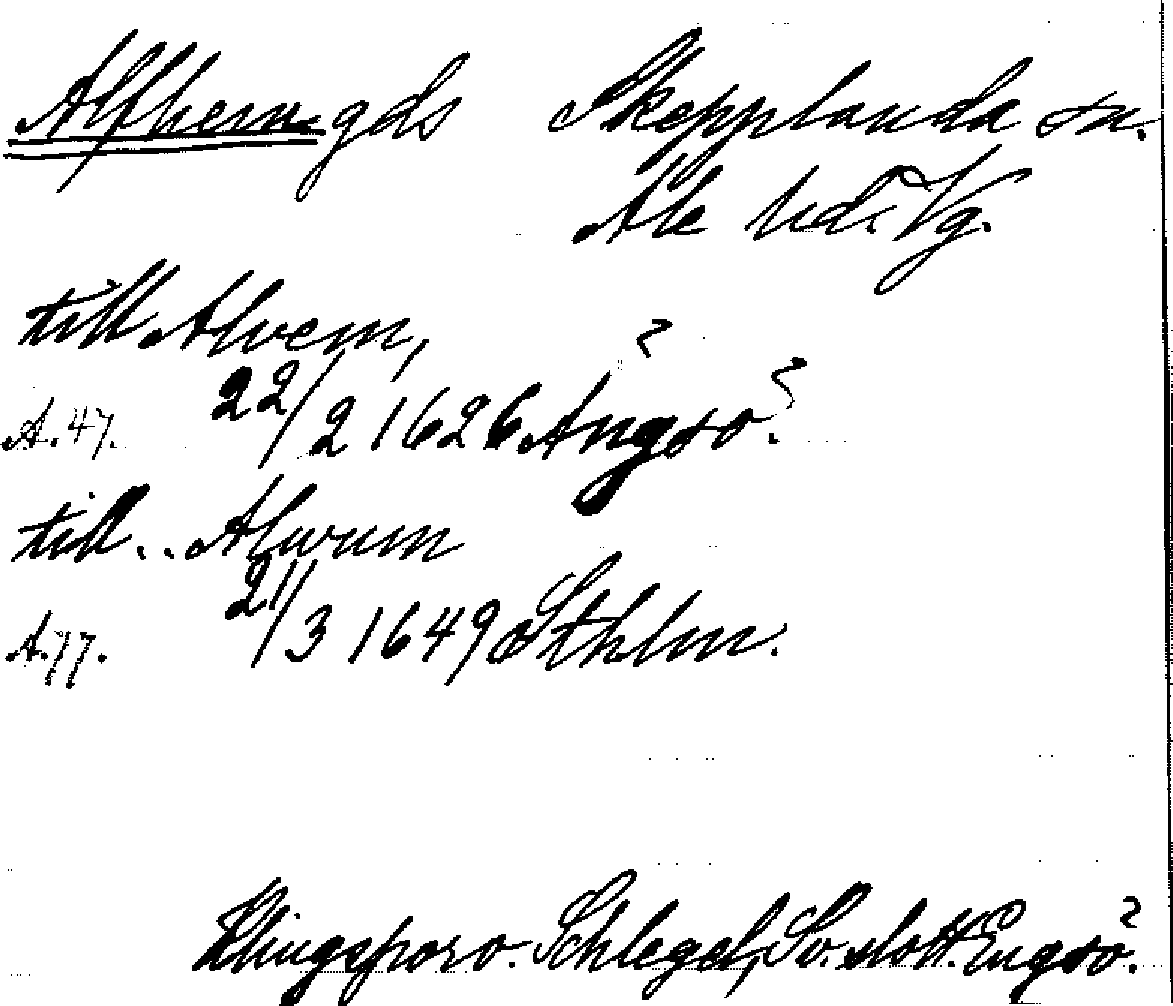 Alfhem gds Skepplanda sn.
Ale hd. Vg.
till Alvem,
A. 47. 22/2 1626 Ängsö.
till .. Alwum
A. 77. 21/3 1649 Sthlm.
Klingspor o. Schlegel, Sv. slott. Engsö.